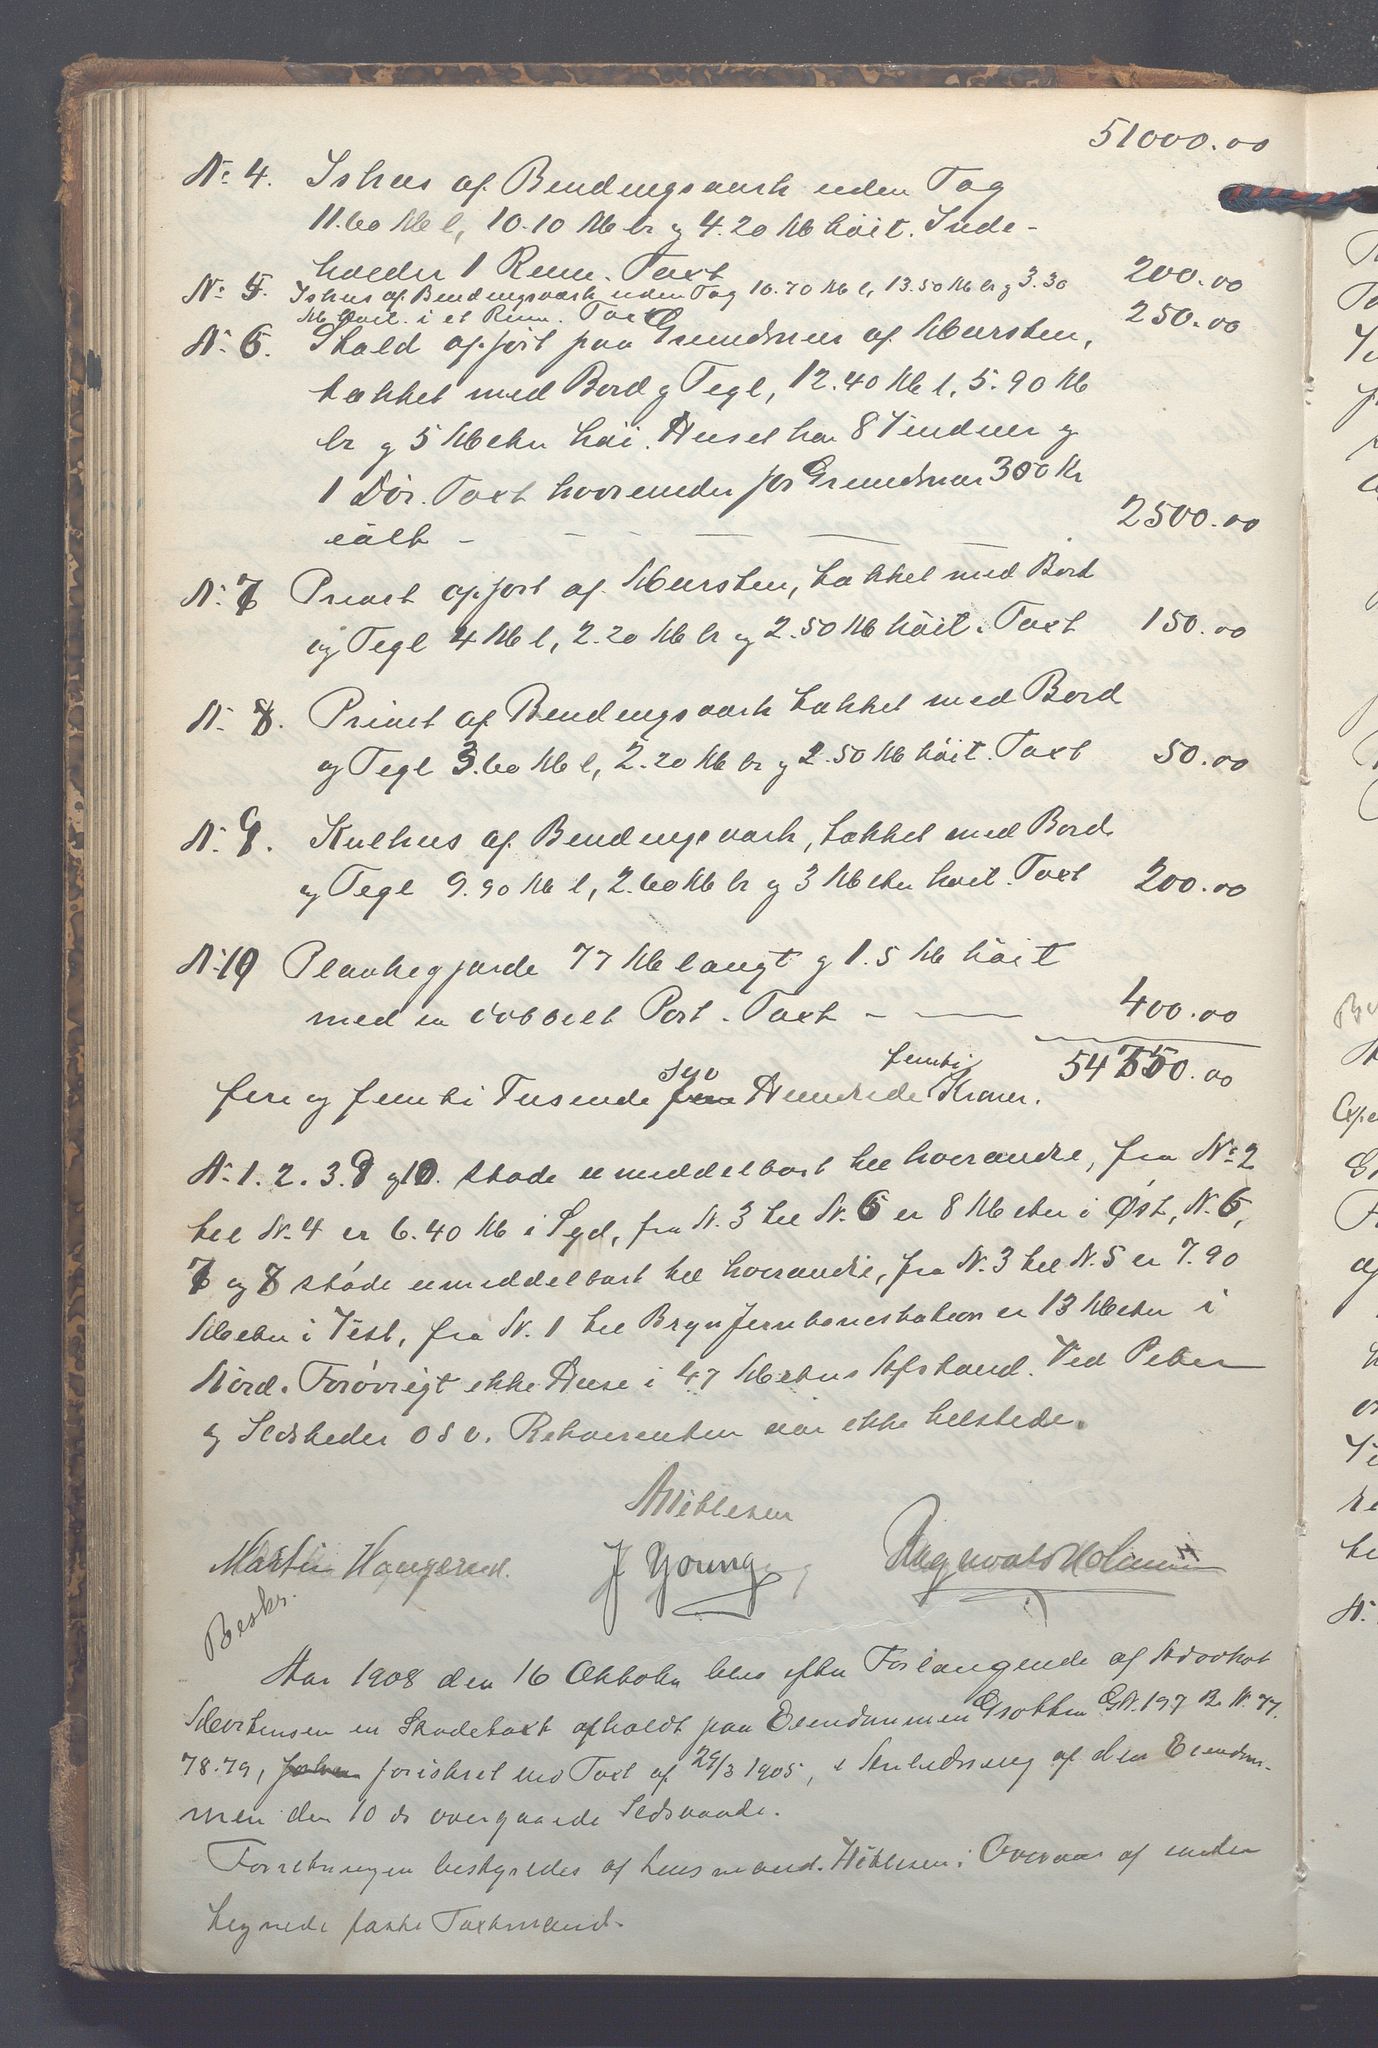 51000.00
No 4. Ishus af Bindingsværk uden Tag
11.60 M l, 10.10 M br og 4.20 M höit. Inde-
holder 1 Rum. Taxt 200.00
No 5. Ishus af Bindingsværk uden Tag 16.70 M l, 13.50 M br og 3.30
M höit i et Rum. Taxt 250.00
N. 6. Stald opfört paa Grundmur af Mursten,
tækket med Bord og Tegl, 12.40 M l, 5.90 M
br og 5 Meter höi. Huset har 8 Vinduer og
1 Dör. Taxt hvorunder for Grundmur 300 Kr
ialt - 2500.00
N. 7 Privet opfört af Mursten, tækket med Bord
og Tegl 4 M l, 2.20 M br og 2.50 M höit. Taxt 150.00
N. 8. Privet af Bindingsværk tækket med Bord
og Tegl 3.60 M l, 2.20 M br og 2.50 M höit. Taxt 50.00
N. 9. Kulhus af Bindingsværk, tækket med Bord
og Tegl 9.90 M l, 2.60 M br og 3 Meter höit. Taxt 200.00
N. 10 Plankegjærde 77 M langt og 1.5 M höit
med en dobbelt Port. Taxt - 400.00
54750.00
syv femti
fire og femti Tusende Hundrede Kroner.
N. 1. 2. 3. 9 og 10. støde umiddelbart til hverandre, fra No 2
til N. 4 er 6.40 M i Syd, fra N. 3 til N. 6 er 8 Meter i Øst, N. 6,
7 og 8 støde umiddelbart til hverandre, fra N. 3 til N. 5 er 7.90
Meter i Vest, fra N. 1 til Bryn Jernbanestation er 13 Meter i
Nörd. Forøvrigt ikke Huse i 47 Meters Afstand. Ved Piber
og Ildsteder osv. Rekvirenten var ikke tilstede.
Martin Haugerud. J Young
Beskr.
Aar 1908 den 16 Oktober blev efter Forlangende af Advokat
Mortensen en Skadetaxt afholdt paa Eiendommen Grotten G.N. 197 B. N. 77.
78. 79, forsikret ved Taxt af 29/3 1905, i Anledning af den Eiendom-
men den 10 ds overgaaede Ildsvaade.
Forretningen bestyredes af Lensmand Niblesen i Overvær af under
tegnede faste Taxtmænd.